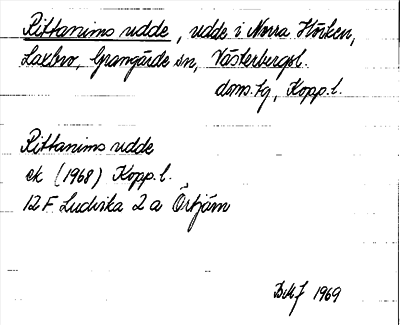 Rittanims udde, udde i Norra Hörken,
Laxbro, Grangärde sn, Västerbergsl.
doms.tg, Kopp. l.
Rittanims udde
ek (1968) Kopp. l.
12 F Ludvika 2 a Örtjärn
1969